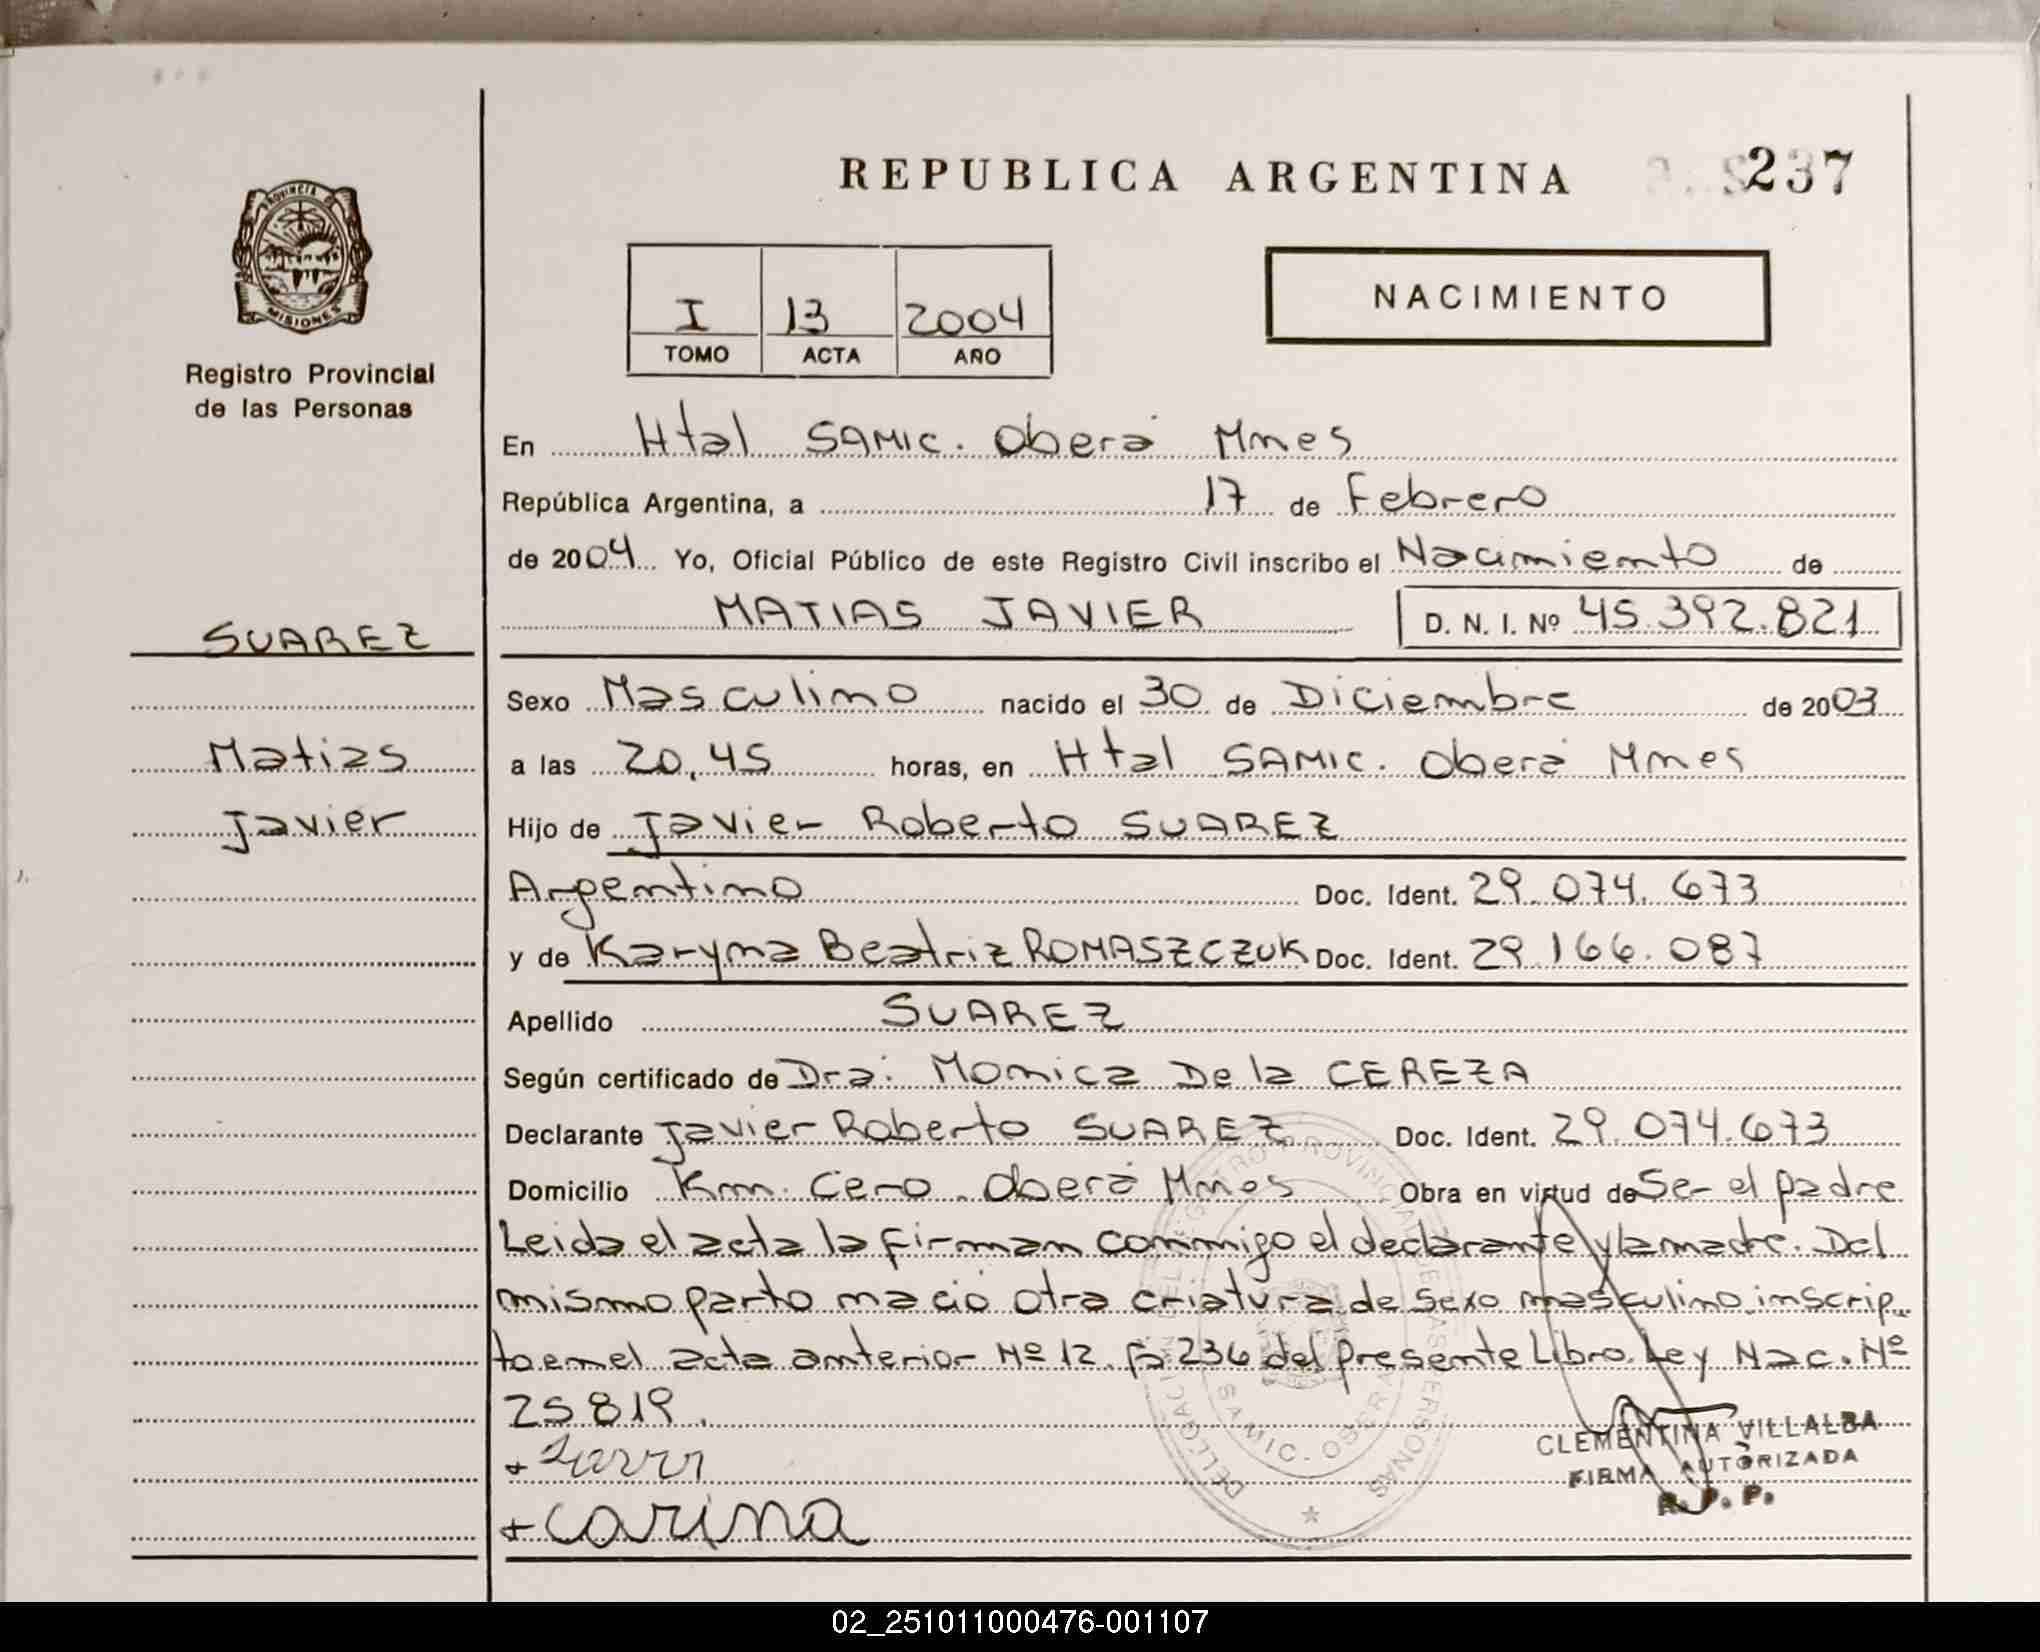 REPUBLICA ARGENTINA
237
PROVINCIA DE
MISIONES
Registro Provincial
de las Personas
I 13 2004
TOMO ACTA AÑO
NACIMIENTO
En Htal SAMIC. Oberá Mnes
República Argentina, a 17 de Febrero
de 2004 Yo, Oficial Público de este Registro Civil inscribo el Nacimiento de
MATIAS JAVIER D. N. I. Nº 45.392.821
SUAREZ
Matias
Javier
Sexo Masculino nacido el 30 de Diciembre de 2003
a las 20,45 horas, en Htal SAMIC. Oberá Mnes
Hijo de Javier Roberto SUAREZ
Argentino Doc. Ident. 29.074.673
y de Karyna Beatriz ROMASZCZUK Doc. Ident. 29.166.087
Apellido SUAREZ
Según certificado de Dra. Monica De la CEREZA
Declarante Javier Roberto SUAREZ Doc. Ident. 29.074.673
Domicilio Km. Cero. Oberá Mnes Obra en virtud de Ser el padre
Leida el acta la firman conmigo el declarante y la madre. Del
mismo parto nació otra criatura de Sexo masculino inscrip
to en el acta anterior Nº 12 Fº 236 del presente Libro. Ley Nac. Nº
25819.
+carina
DELEGACION DEL REGISTRO PROVINCIAL DE LAS PERSONAS
SAMIC. OBERA
CLEMENTINA VILLALBA
FIRMA AUTORIZADA
R. P. P.
02_251011000476-001107